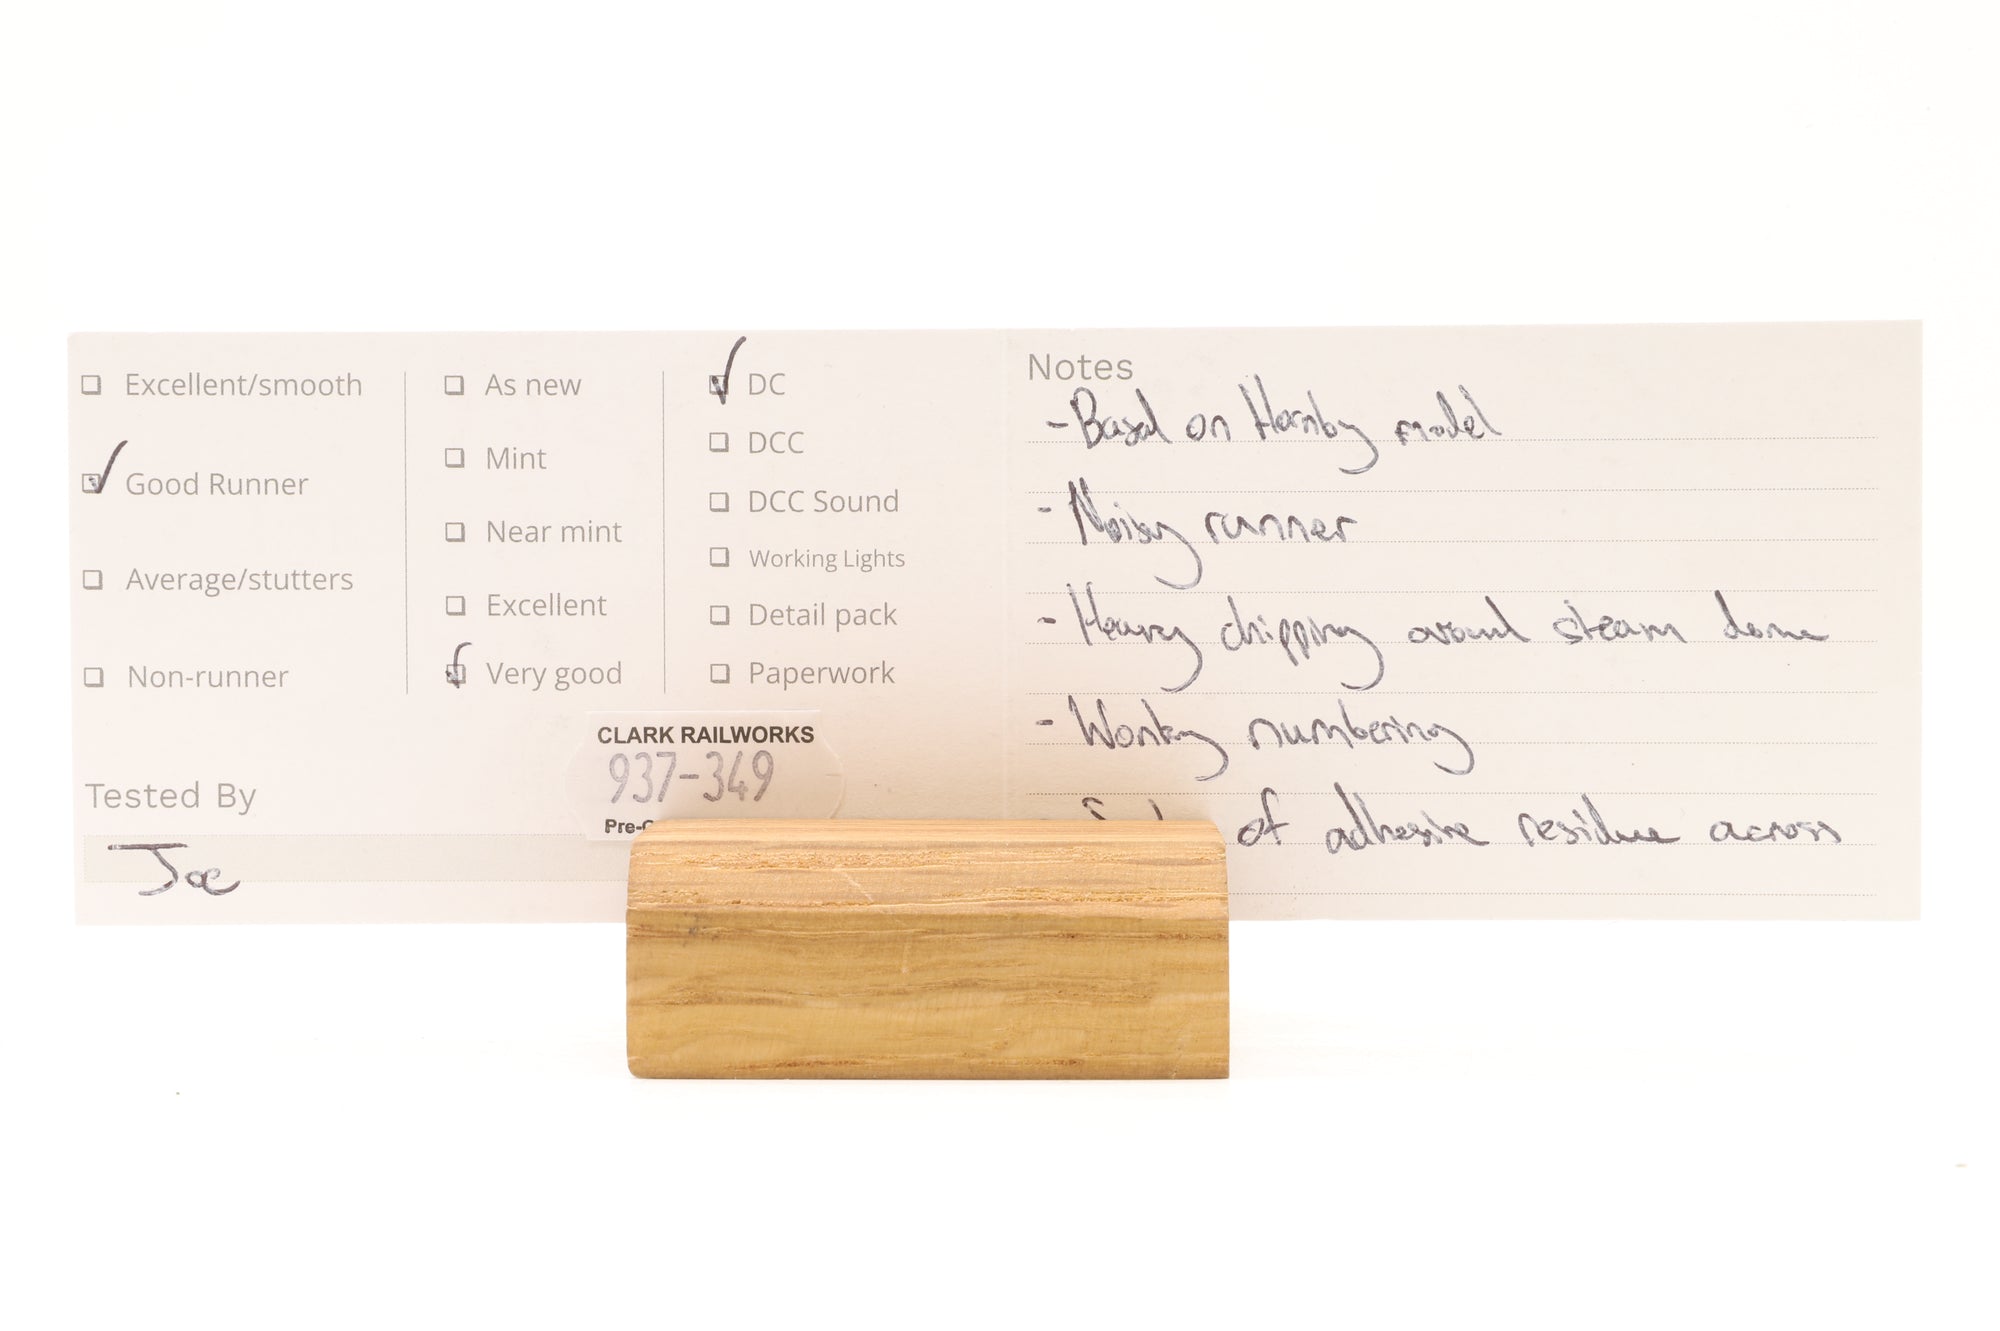 Excellent/smooth
Good Runner
Average/stutters
Non-runner
As new
Mint
Near mint
Excellent
Very good
DC
DCC
DCC Sound
Working Lights
Detail pack
Paperwork
CLARK RAILWORKS
937-349
Tested By
Joe
Notes
- Based on Hornby model
- Noisy runner
- Heavy chipping around steam dome
- Wonky numbering
of adhesive residue across